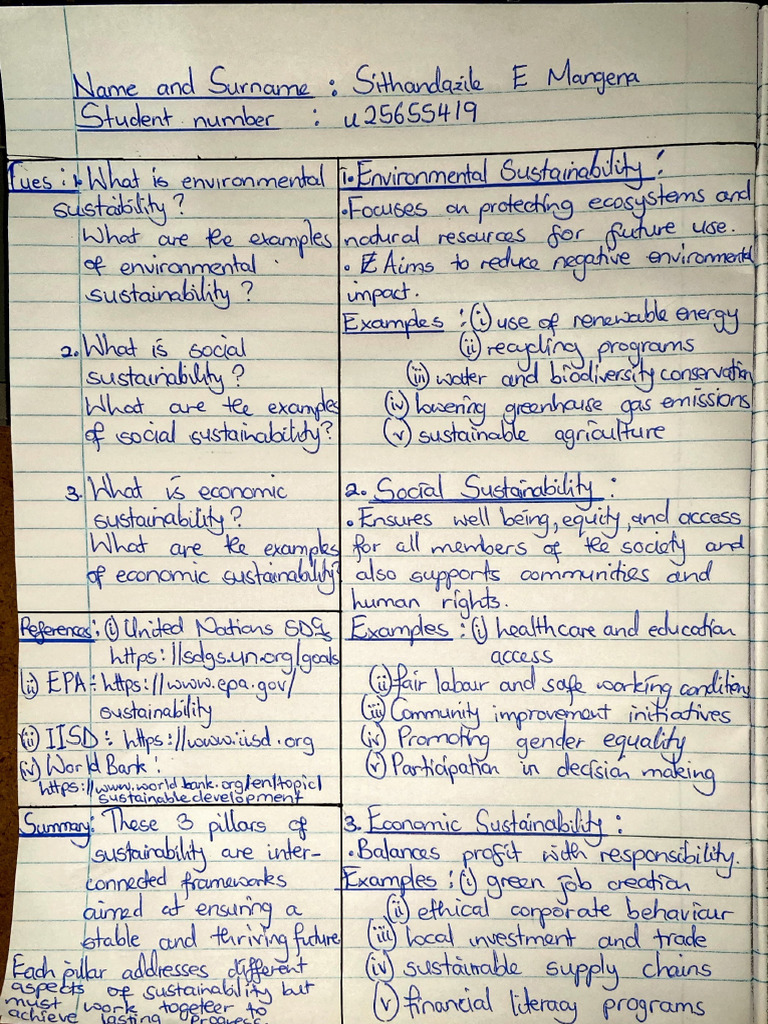 Name and Surname : Sithandazile E Mangena
Student number : u25655419
Tues : 1. What is environmental
sustaibility ?
What are the examples
of environmental
sustainability ?
2. What is social
sustainability ?
What are the examples
of social sustainability?
3. What is economic
sustainability ?
What are the examples
of economic sustainability?
References : (i) United Nations SDGs
https://sdgs.un.org/goals
(ii) EPA : https://www.epa.gov/
sustainability
(iii) IISD : https://www.iisd.org
(iv) World Bank :
https://www.worldbank.org/en/topic/
sustainabledevelopment
Summary : These 3 pillars of
sustainability are inter-
connected frameworks
aimed at ensuring a
stable and thriving future
Each pillar addresses different
aspects of sustainability but
must work togeteer to
achieve lasting progress.
1. Environmental Sustainability :
• Focuses on protecting ecosystems and
natural resources for future use.
• Aims to reduce negative environmental
impact.
Examples : (i) use of renewable energy
(ii) recycling programs
(iii) water and biodiversity conservation
(iv) lowering greenhouse gas emissions
(v) sustainable agriculture
2. Social Sustainability :
• Ensures well being, equity, and access
for all members of the society and
also supports communities and
human rights.
Examples : (i) healthcare and education
access
(ii) fair labour and safe working conditions
(iii) Community improvement initiatives
(iv) Promoting gender equality
(v) Participation in decision making
3. Economic Sustainability :
• Balances profit with responsibility.
Examples : (i) green job creation
(ii) ethical corporate behaviour
(iii) local investment and trade
(iv) sustainable supply chains
(v) financial literacy programs